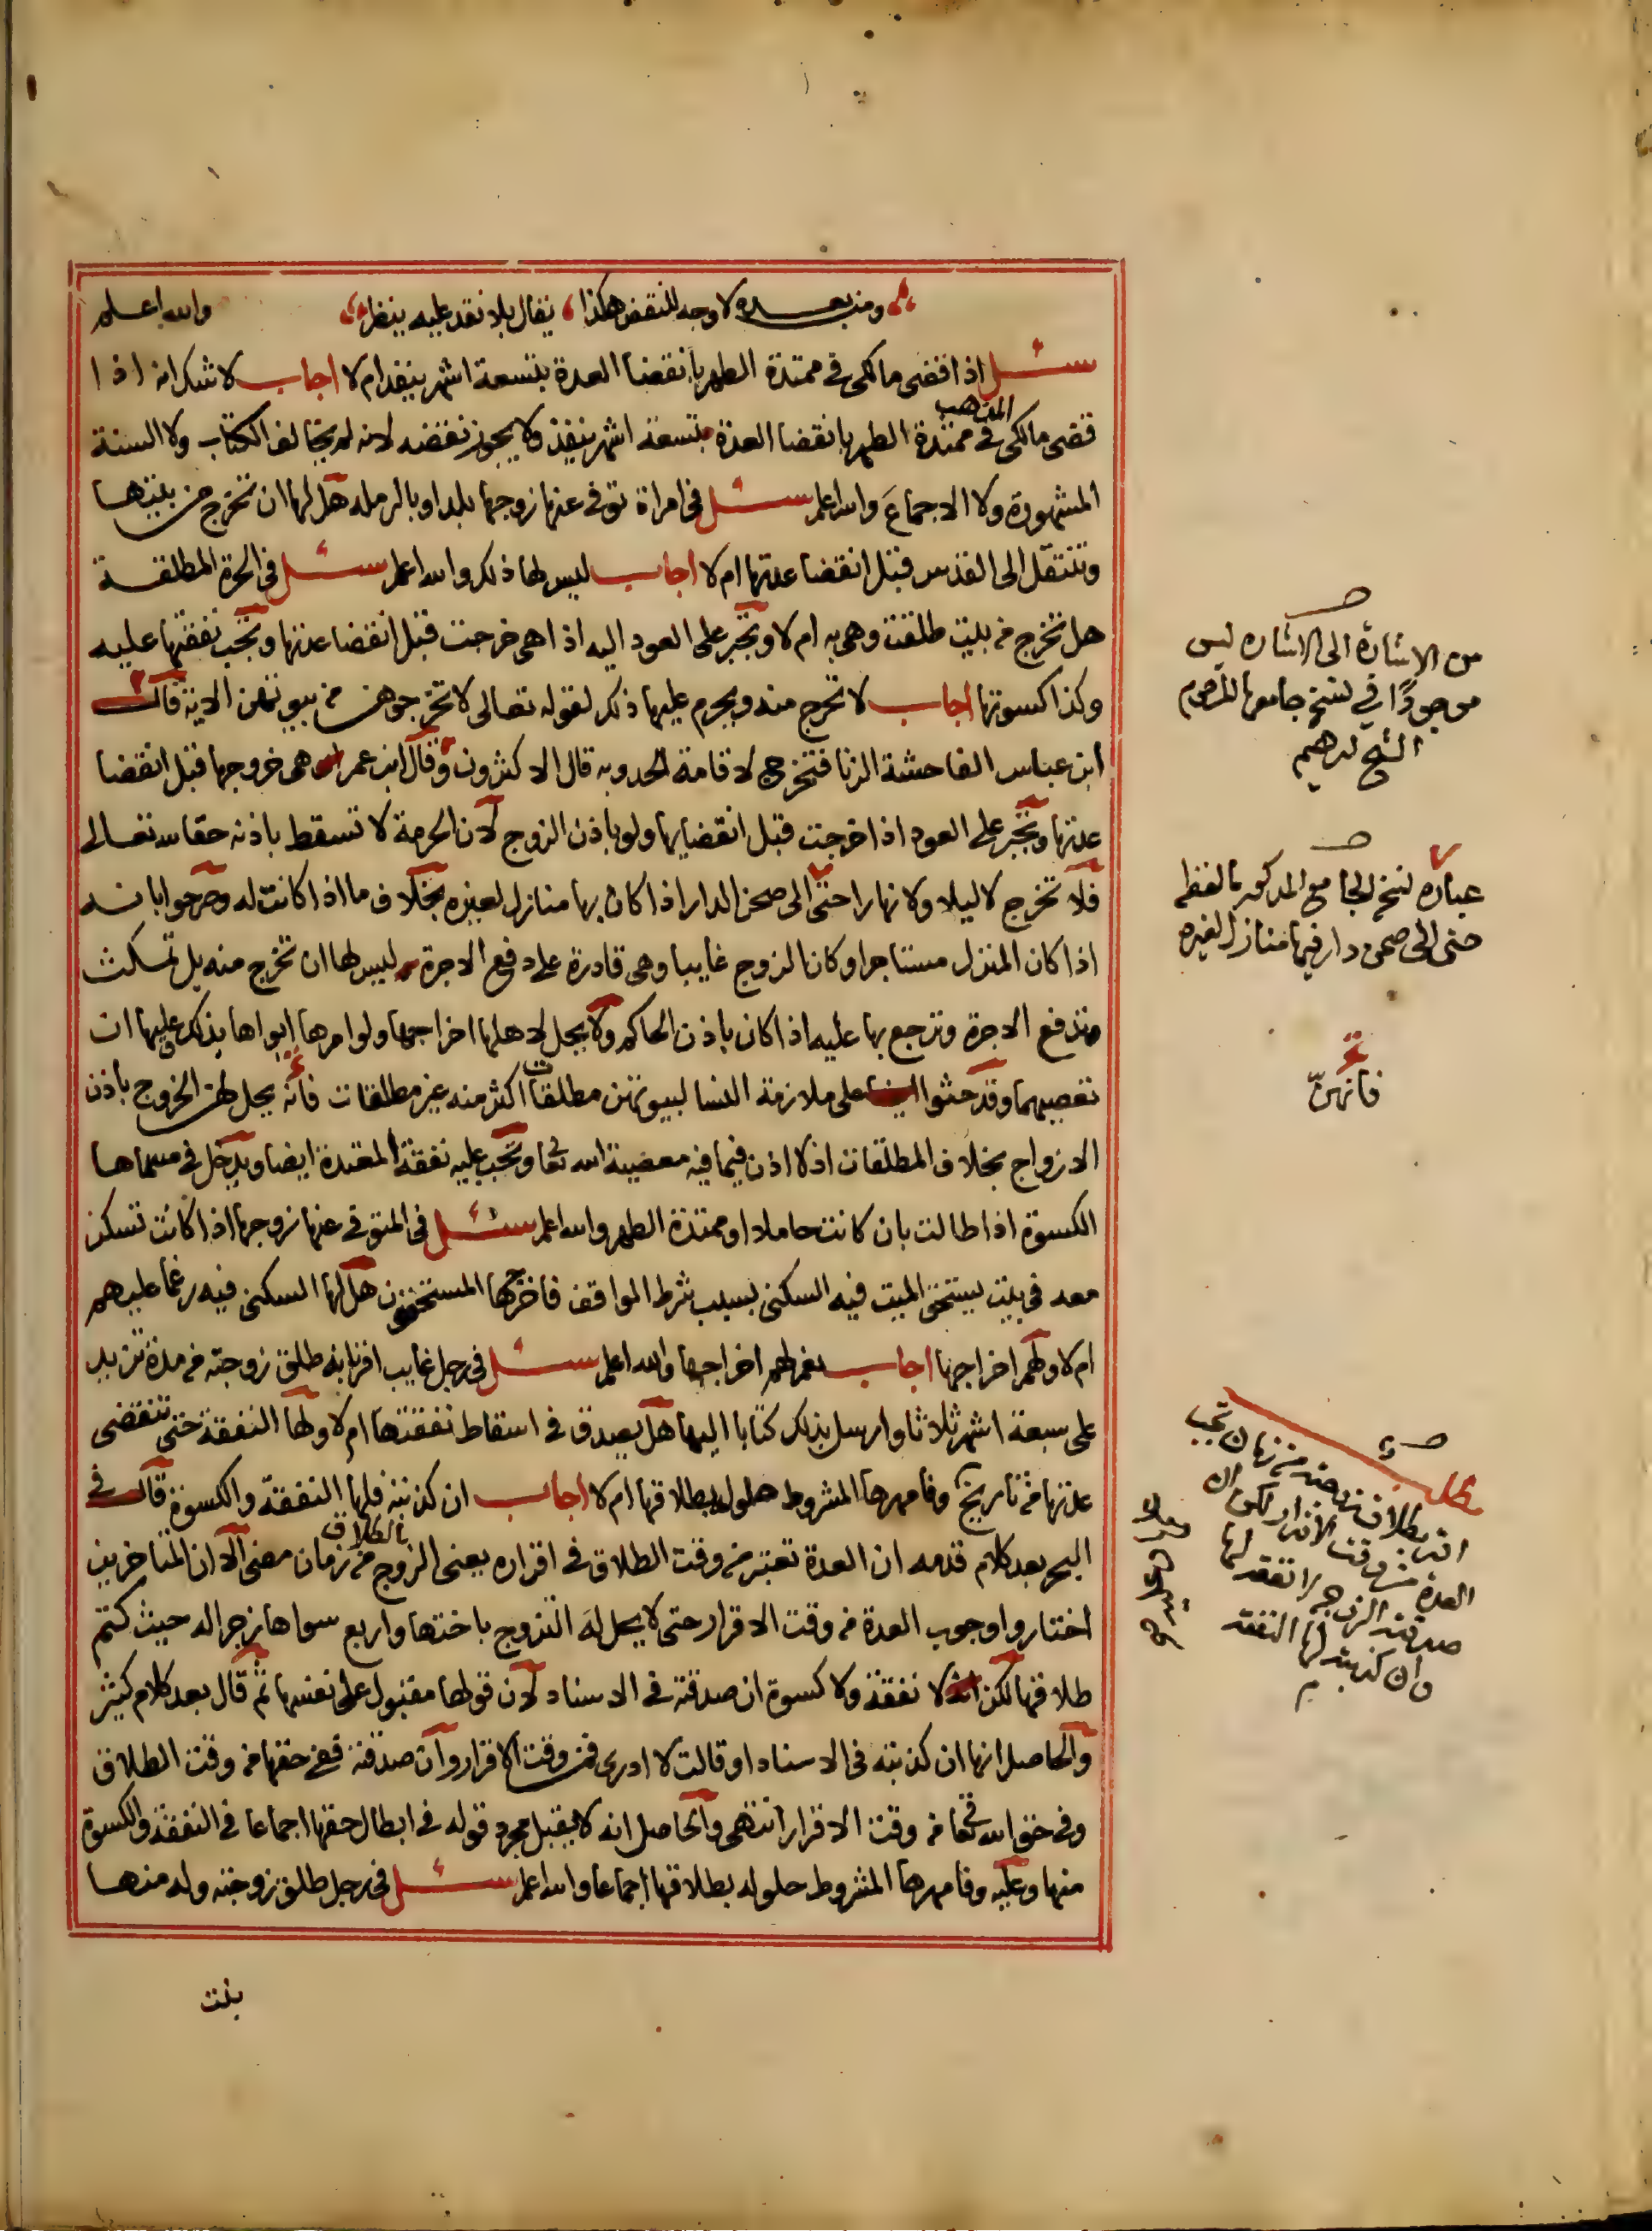 ومن بعده لا وجه للنقض هكذا يقال بلا نقد عليه ينظر والله اعلم
سئل اذا قضى مالكي في ممتدة الطهر بانقضا العدة بتسعة اشهر ينفذ ام لا اجاب لا شك انه اذا
قضى مالكي المذهب في ممتدة الطهر بانقضا العدة بتسعة اشهر ينفذ ولا يجوز نقضه لانه لم يخالف الكتاب ولا السنة
المشهورة ولا الاجماع والله اعلم سئل في امراة توفي عنها زوجها بلد او بالرملة هل لها ان تخرج من بيتها
وتنتقل الى القدس قبل انقضا عدتها ام لا اجاب ليس لها ذلك والله اعلم سئل في الحرة المطلقة
هل تخرج من بيت طلقت وهي به ام لا وتجبر على العود اليه اذا هي خرجت قبل انقضا عدتها وتجب نفقتها عليه
وكذا كسوتها اجاب لا تخرج منه ويحرم عليها ذلك لقوله تعالى لا تخرجوهن من بيوتهن الاية قال
ابن عباس الفاحشة الزنا فتخرج لاقامة الحد وبه قال الاكثرون وقال ابن عمر هي خروجها قبل انقضا
عدتها وتجبر على العود اذا خرجت قبل انقضايها ولو باذن الزوج لان الحرمة لا تسقط باذنه حقا لله تعالى
فلا تخرج لا ليلا ولا نهارا حتى الى صحن الدار اذا كان بها منازل لغيره بخلاف ما اذا كانت له وصرحوا بانه
اذا كان المنزل مستاجرا وكان الزوج غايبا وهي قادرة على دفع الاجرة ليس لها ان تخرج منه بل تمكث
وتدفع الاجرة وترجع بها عليه اذا كان باذن الحاكم ولا يحل لاهلها اخراجها ولو امرها ابواها بذلك عليها ان
تعصيهما وقد حثوا على ملازمة النسا لبيوتهن مطلقات اكثر منه غير مطلقات فانه يحل لهن الخروج باذن
الازواج بخلاف المطلقات اذ لا اذن فيما فيه معصية الله تعا وتجب عليه نفقة المعتدة ايضا ويدخل في مسماها
الكسوة اذا طالت بان كانت حاملا او ممتدة الطهر والله اعلم سئل في المتوفى عنها زوجها اذا كانت تسكن
معه في بيت يستحق الميت فيه السكنى بسبب شرط الواقف فاخرجها المستحقون هل لها السكنى فيه رغما عليهم
ام لا ولهم اخراجها اجاب نعم لهم اخراجها والله اعلم سئل في رجل غايب اقر بانه طلق زوجته من مدة تزيد
على سبعة اشهر ثلاثا وارسل بذلك كتابا اليها هل يصدق في اسقاط نفقتها ام لا ولها النفقة حتى تنقضي
عدتها من تاريخ وفا مهرها المشروط حلوله بطلاقها ام لا اجاب ان كذبته فلها النفقة والكسوة قال في
البحر بعد كلام قدمه ان العدة تعتبر من وقت الطلاق في اقراره يعني الزوج بالطلاق من زمان مضى الا ان المتاخرين
اختاروا وجوب العدة من وقت الاقرار حتى لا يحل له التزوج باختها واربع سواها زجرا له حيث كتم
طلاقها لكن لا نفقة ولا كسوة ان صدقته في الاسناد لان قولها مقبول على نفسها ثم قال بعد كلام كثير
والحاصل انها ان كذبته في الاسناد او قالت لا ادري فمن وقت الاقرار وان صدقته ففي حقها من وقت الطلاق
وفي حق الله تعا من وقت الاقرار انتهى والحاصل انه لا يقبل مجرد قوله في ابطال حقها اجماعا في النفقة والكسوة
منها وعليه وفا مهرها المشروط حلوله بطلاقها اجماعا والله اعلم سئل في رجل طلق زوجته وله منها
بنت
من الاشارة الى الاشاره ليس
موجودًا في نسخ جامعها المرحوم
الشيخ ابرهيم
عباره نسخ الجامع المذكور بالفظه
حتى الى صحن دار فيها منازل لغيره
فانهنّ
مطلب
اقر بطلاق زوجته من زمان تجب
العدة من وقت الاقرار لكن ان
صدقته الزوجه لا نفقه لها
وان كذبته لها النفقه